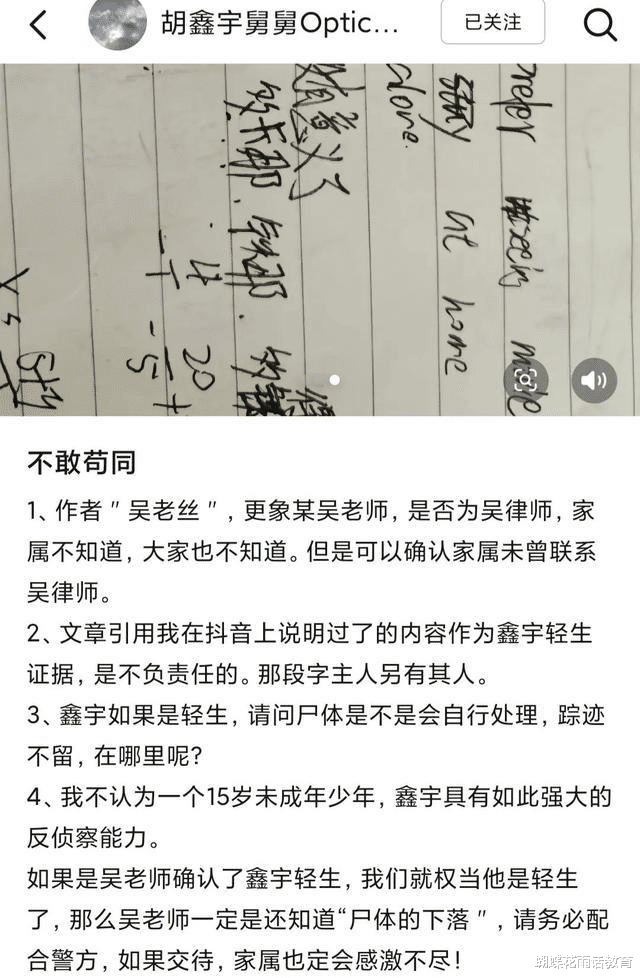 胡鑫宇舅舅Optic...
已关注
prefer
stay at home
alone.
不敢苟同
1、作者＂吴老丝＂, 更象某吴老师, 是否为吴律师, 家
属不知道, 大家也不知道。但是可以确认家属未曾联系
吴律师。
2、文章引用我在抖音上说明过了的内容作为鑫宇轻生
证据, 是不负责任的。那段字主人另有其人。
3、鑫宇如果是轻生, 请问尸体是不是会自行处理, 踪迹
不留, 在哪里呢?
4、我不认为一个15岁未成年少年, 鑫宇具有如此强大的
反侦察能力。
如果是吴老师确认了鑫宇轻生, 我们就权当他是轻生
了, 那么吴老师一定是还知道“尸体的下落＂, 请务必配
合警方, 如果交待, 家属也定会感激不尽!
蝴蝶花雨话教育